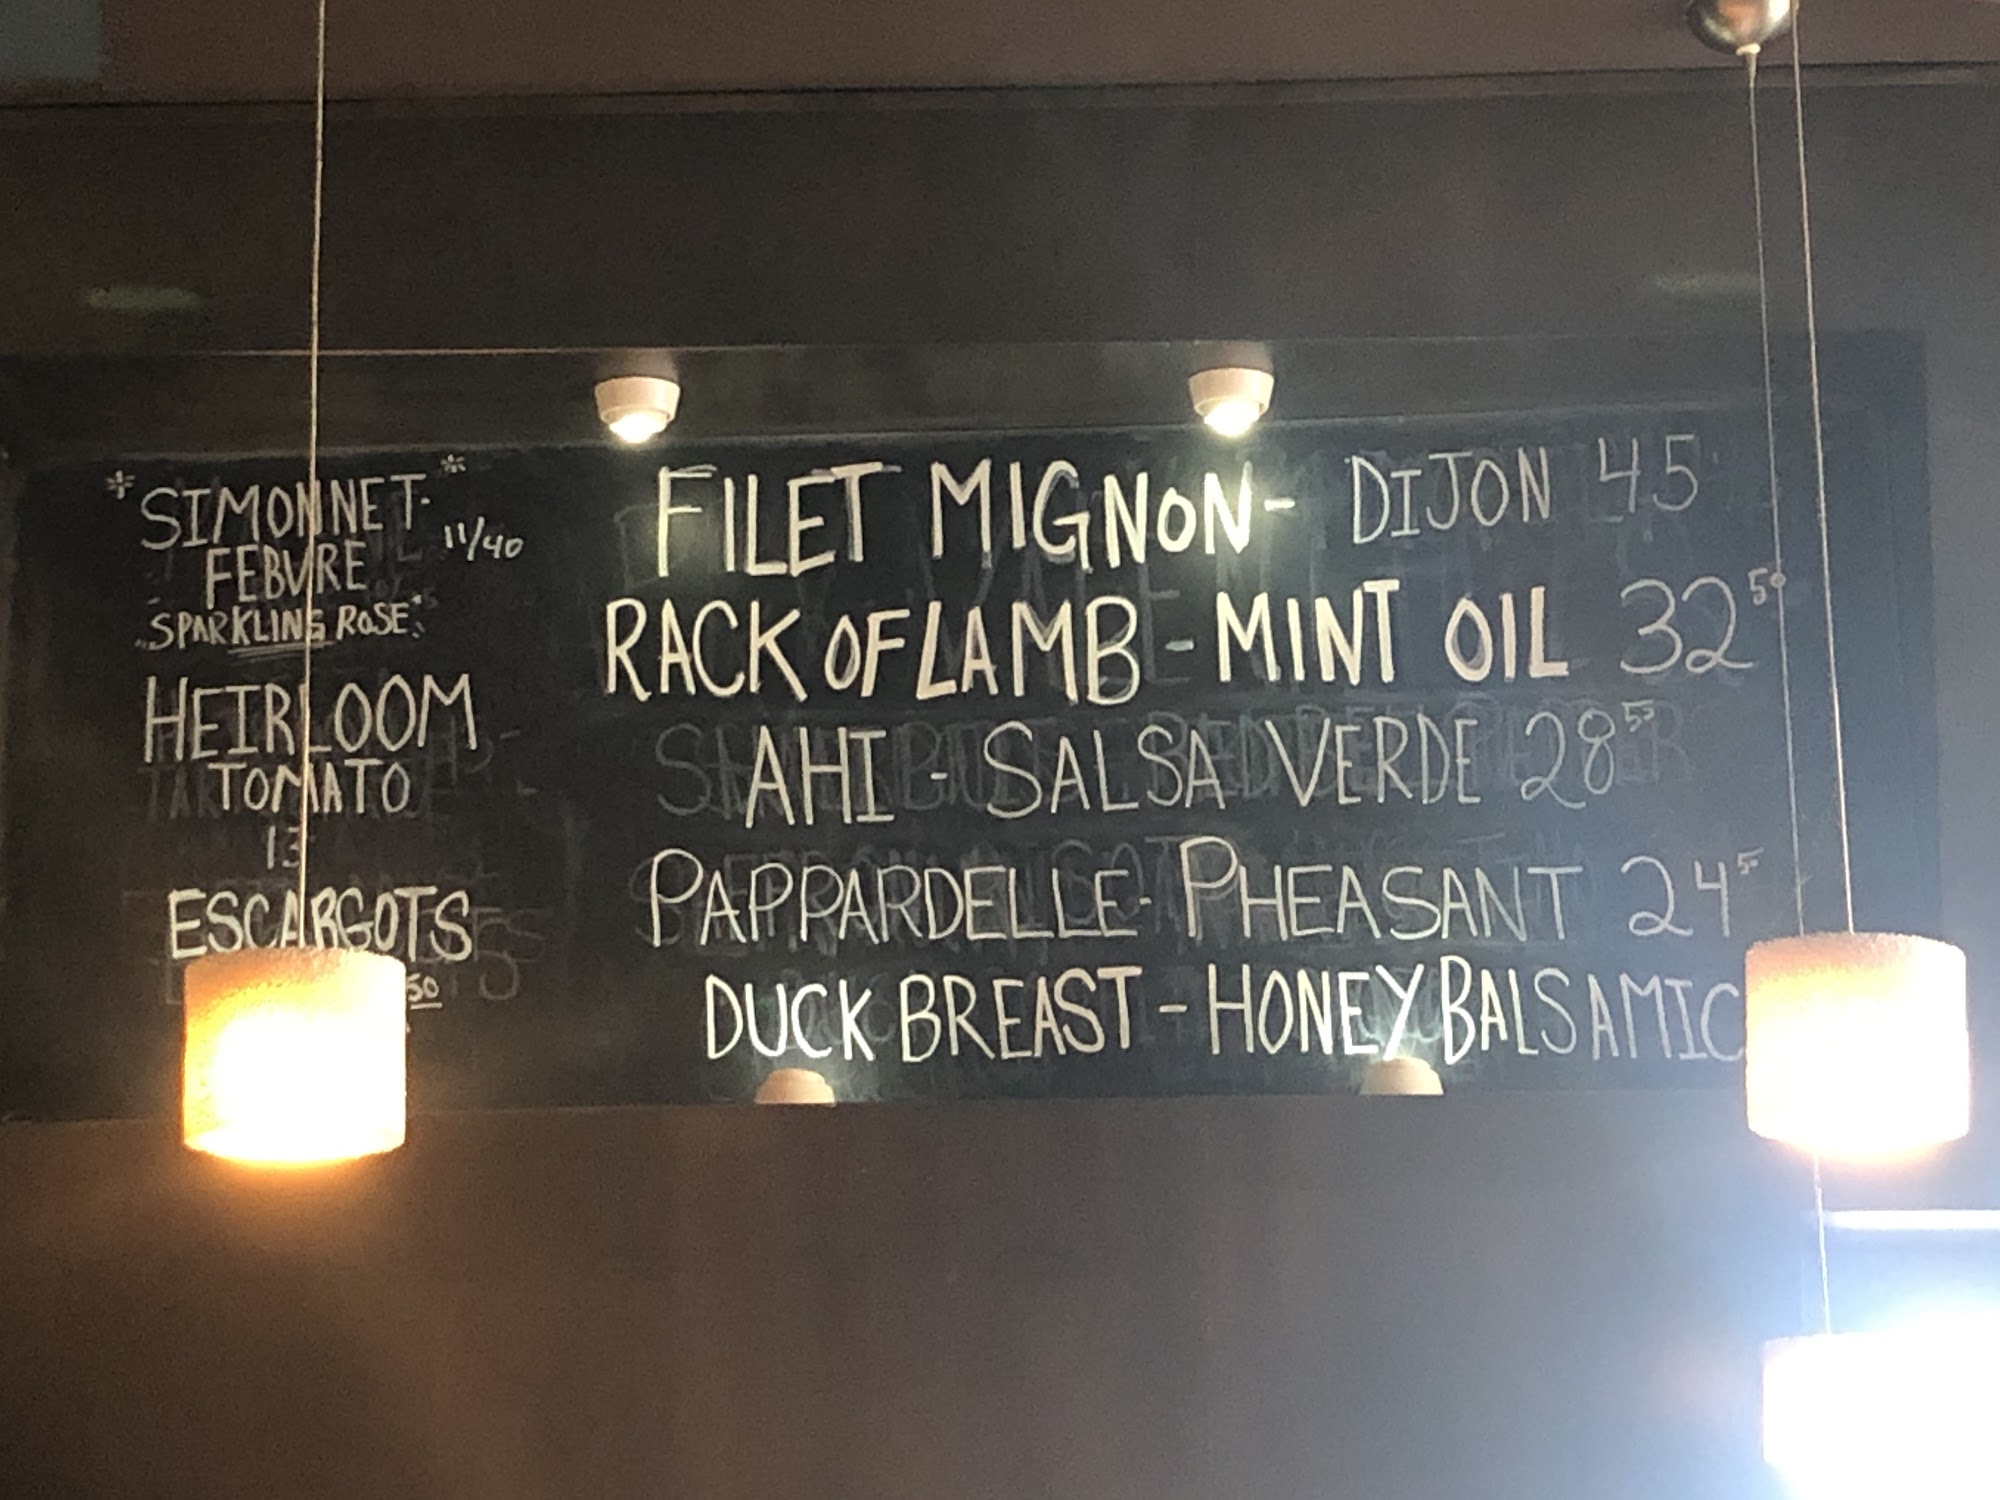 *SIMONNET-*
FEBVRE 11/40
"SPARKLING ROSE"
HEIRLOOM
TOMATO
13
ESCARGOTS
50
FILET MIGNON - DIJON 45
RACK OF LAMB - MINT OIL 32 50
AHI - SALSA VERDE 28 55
PAPPARDELLE - PHEASANT 24 50
DUCK BREAST - HONEY BALSAMIC